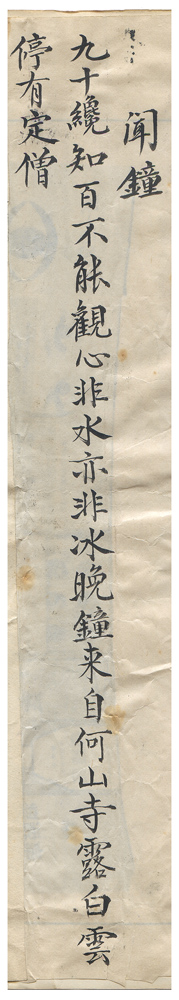 聞鐘
九十纔知百不能觀心非水亦非冰晚鐘来自何山寺露白雲
停有定僧